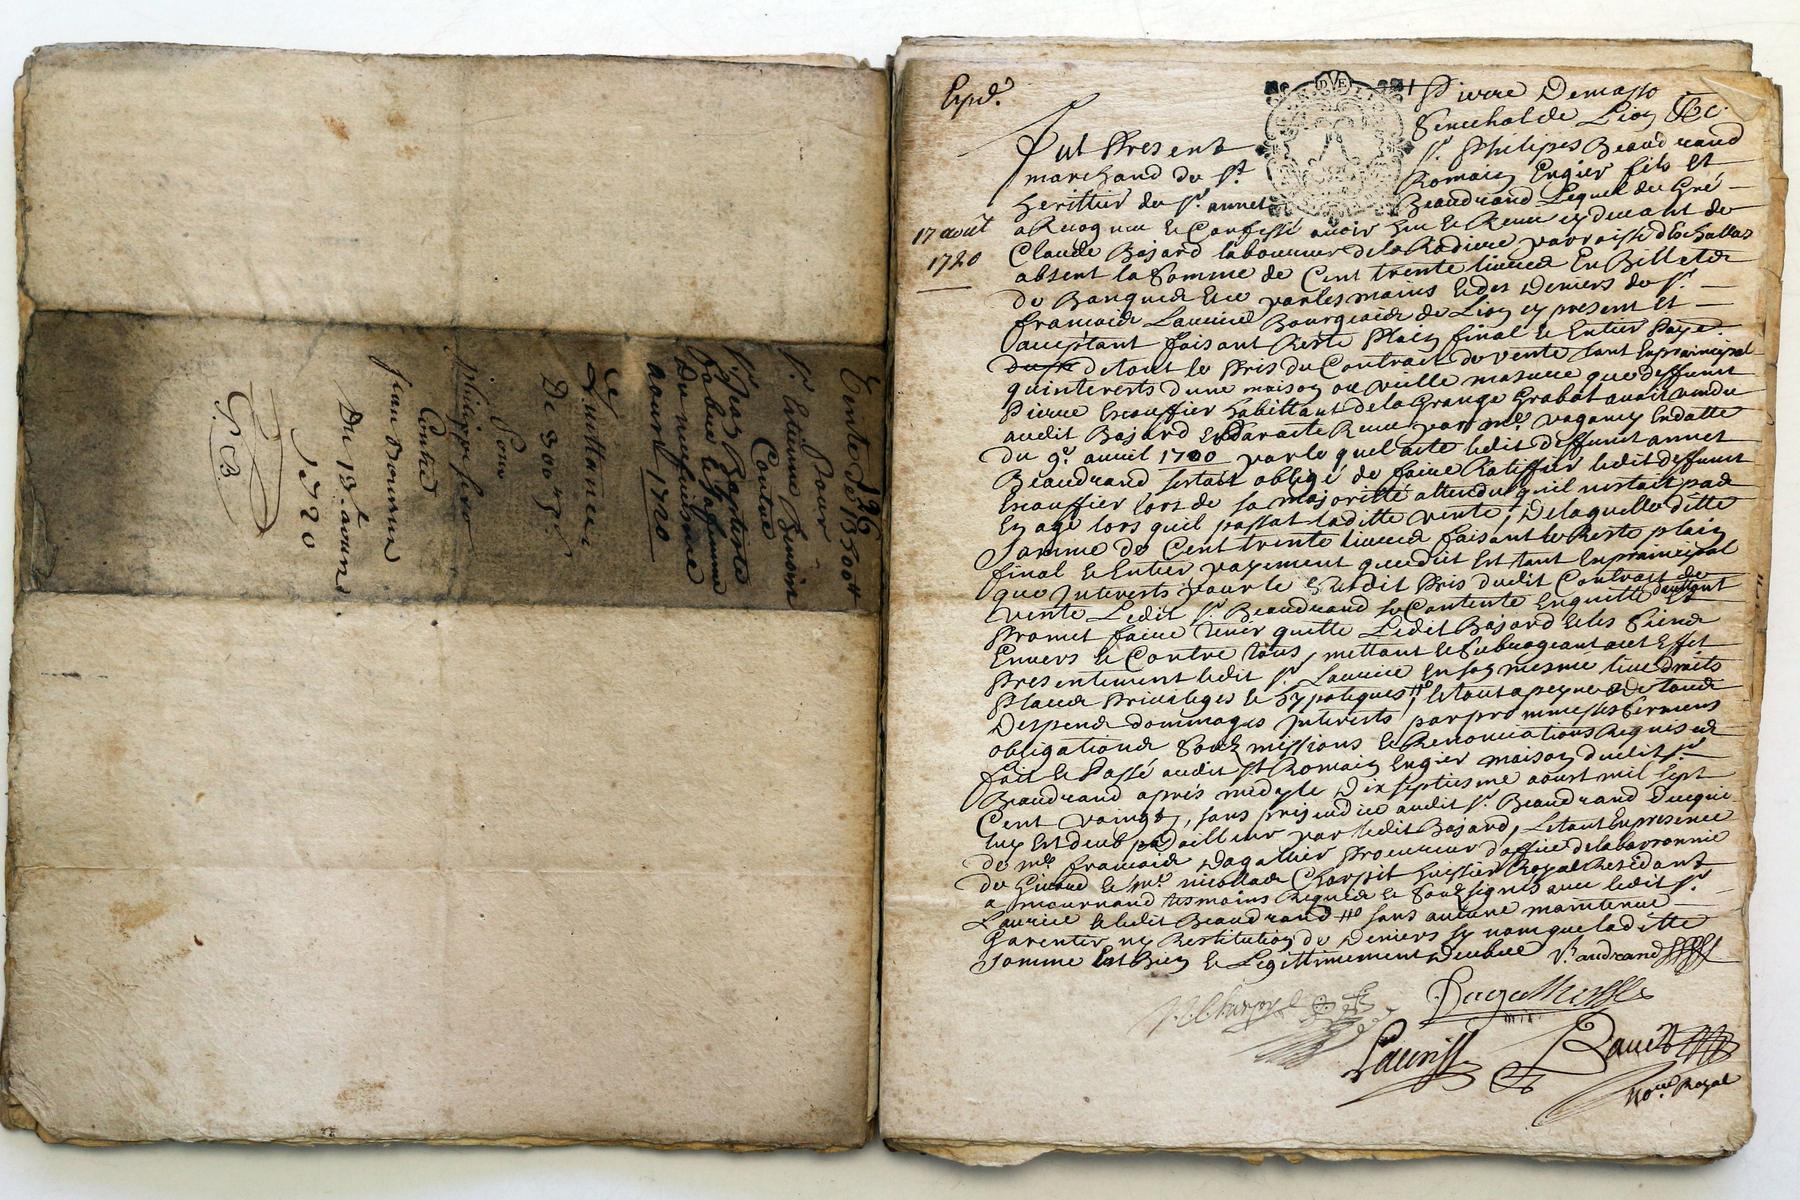 Vente de 1500 ₶
126
Pour
Sr. Estienne
Contre
Sr. Jean Baptiste
du neufviesme
aoust 1720
Et
Quittance
De 300 ₶
Pour
Philippe
Contre
Jean
Du 13e. aoust
1720
Exped.
Pierre Demasso
Senechal de Lion &c.
Fut Present Sr. Philipes Beaudrand
marchand du St. Romain Engier fils et
herittier de Sr. annet Beaudrand Lequel de Gré
17 aoust
1720
a Recognu et Confessé avoir heu et Receu cy devant de
Claude Bajard laboureur de la Rodiere parroisse d'Eschallas
absent la Somme de Cent trente livres En Billets
de Banque par les mains et des Deniers de Sr.
francois Laurice Bourgeois de Lion cy present et
acceptant faisant Reste Plain final et Entier paye
de tout le Pris du Contrait de vente tant En prinsipal
qu'interests d'une maison ou vielle masure que deffunt
Pierre habittant de la Grange avoit vendu
audit Bajard Receu par me. vaganey En datte
du 9e. avril 1700 par lequel acte ledit deffunt annet
Beaudrand s'estoit obligé de faire Ratiffier ledit deffunt
lors de sa majoritté attendu qu'il n'estoit pas
En age lors qu'il passat laditte vente, De laquelle ditte
Somme de Cent trente livres faisant le Reste plain
final et Entier payement que dit Est tant En prinsipal
que Interests pour le Susdit Pris dudit Contrait de
vente Ledit Sr. Beaudrand se Contente Enquitte
Promet faire tenir quitte Ledit Bajard et les Siens
Envers et Contre tous, mettant et Subrogeant a cet Effet
Presentement ledit Sr. Laurice En son mesme lieu droits
Place Privileges et hypoteques, le tout a peyne de tous
Despens dommages Interests, par promesses Sermens
obligations Soubzmissions et Renonciations Requises
fait et Passé audit St. Romain Engier maison dudit Sr.
Beaudrand après midy le Dix septiesme aoust mil sept
Cent vaingt, sans prejudice audit Sr. Beaudrand De ce qui
luy Est deub d'ailleurs par ledit Bajard, le tout En presence
de me. francois Dagallier Procureur d'office de la baronnie
de Givord et me. nicollas Charpit huissier Royal Residant
a mournand tesmoins Requis et Soubsignés avec ledit Sr.
Laurice et ledit Beaudrand sans aucune maintenue
Garentie ny Restitution de Deniers sy non que laditte
Somme Est Bien et Legittimement Deubue
Laurice
no.re Royal